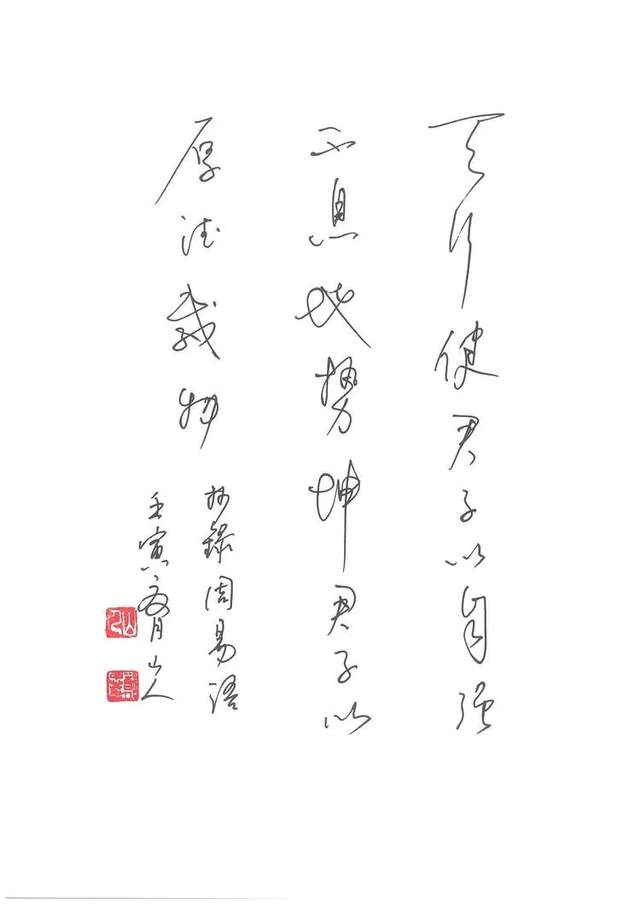 天行健君子以自强
不息地势坤君子以
厚德载物
抄録周易语
壬寅月山人